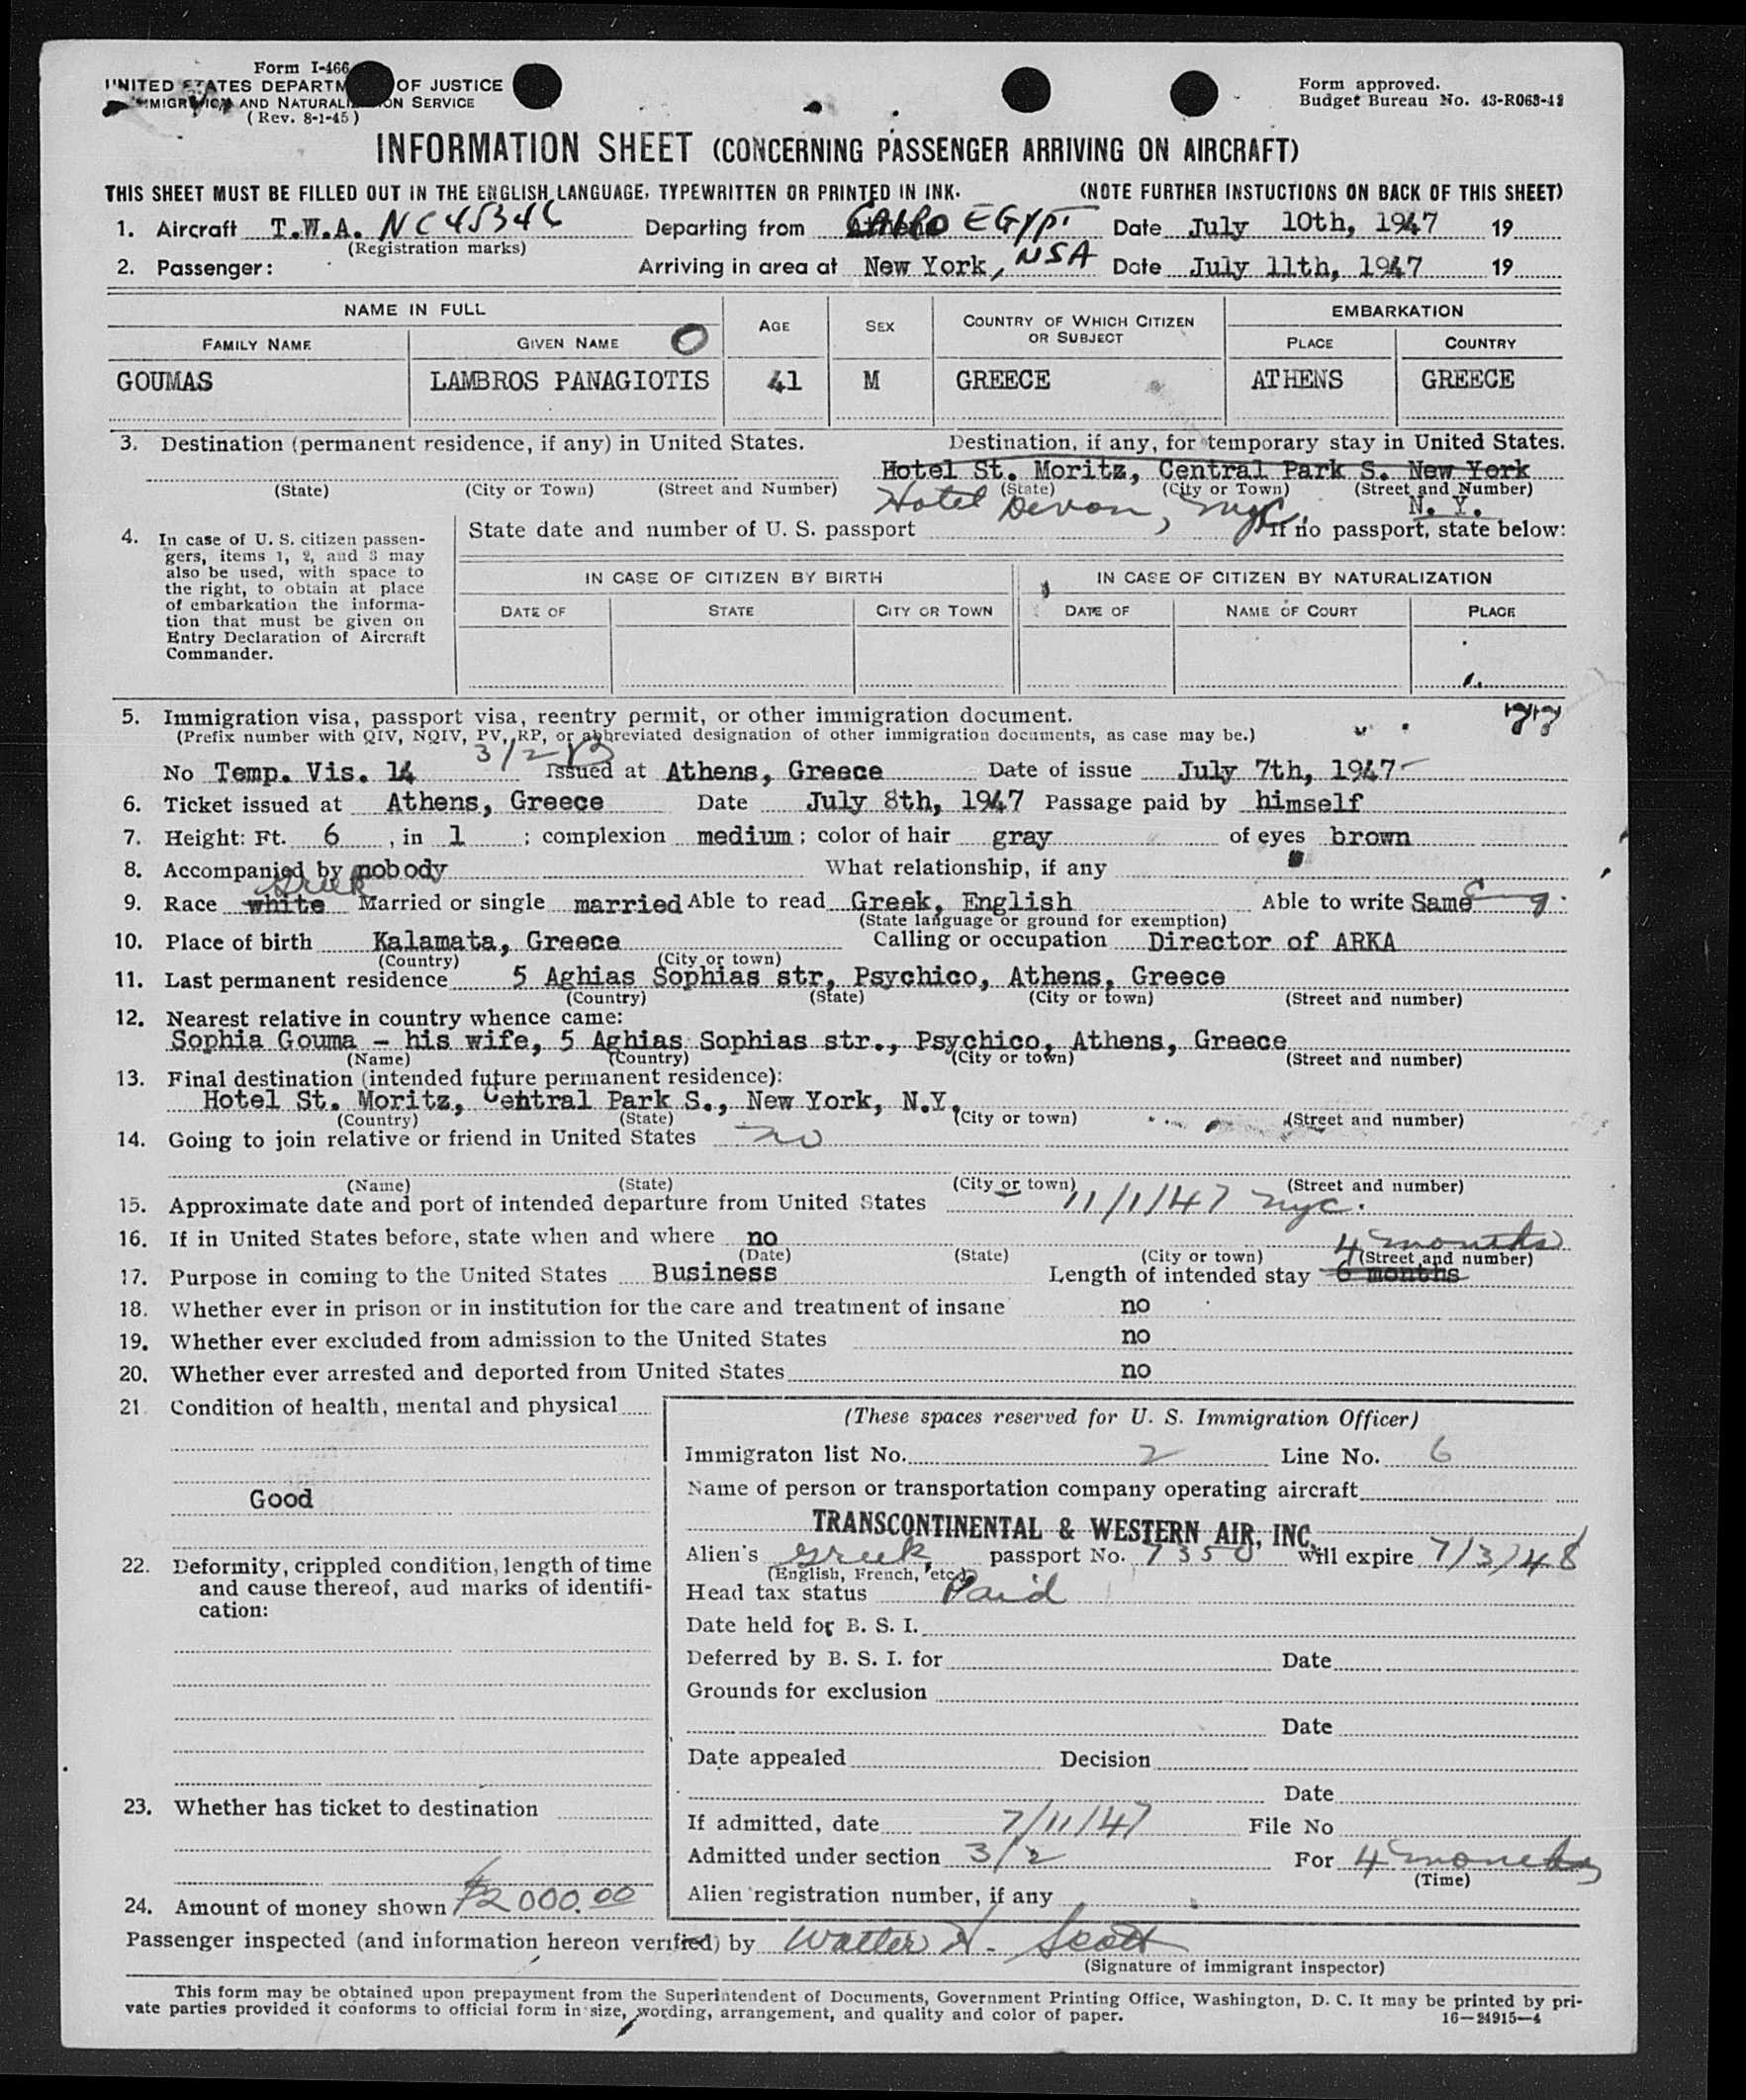 Form I-466
UNITED STATES DEPARTM OF JUSTICE
IMMIGRATION AND NATURALI ON SERVICE
(Rev. 8-1-45)
Form approved.
Budget Bureau No. 43-R063-42
INFORMATION SHEET (CONCERNING PASSENGER ARRIVING ON AIRCRAFT)
THIS SHEET MUST BE FILLED OUT IN THE ENGLISH LANGUAGE, TYPEWRITTEN OR PRINTED IN INK. (NOTE FURTHER INSTUCTIONS ON BACK OF THIS SHEET)
1. Aircraft T.W.A. NC45346 Departing from CAIRO EGYPT Date July 10th, 1947 19
(Registration marks)
2. Passenger: Arriving in area at New York, NSA Date July 11th, 1947 19
NAME IN FULL AGE SEX COUNTRY OF WHICH CITIZEN OR SUBJECT EMBARKATION
FAMILY NAME GIVEN NAME O PLACE COUNTRY
GOUMAS LAMBROS PANAGIOTIS 41 M GREECE ATHENS GREECE
3. Destination (permanent residence, if any) in United States. Destination, if any, for temporary stay in United States.
Hotel St. Moritz, Central Park S. New York
(State) (City or Town) (Street and Number) (State) (City or Town) (Street and Number)
Hotel Devon, nyc. N. Y.
4. In case of U. S. citizen passen- State date and number of U. S. passport If no passport, state below:
gers, items 1, 2, and 3 may
also be used, with space to
the right, to obtain at place
of embarkation the informa-
tion that must be given on
Entry Declaration of Aircraft
Commander.
IN CASE OF CITIZEN BY BIRTH IN CASE OF CITIZEN BY NATURALIZATION
DATE OF STATE CITY OR TOWN DATE OF NAME OF COURT PLACE
5. Immigration visa, passport visa, reentry permit, or other immigration document. 77
(Prefix number with QIV, NQIV, PV, RP, or abbreviated designation of other immigration documents, as case may be.)
3/2 B
No Temp. Vis. 14 Issued at Athens, Greece Date of issue July 7th, 1947
6. Ticket issued at Athens, Greece Date July 8th, 1947 Passage paid by himself
7. Height: Ft. 6 , in 1 ; complexion medium ; color of hair gray of eyes brown
8. Accompanied by nobody What relationship, if any
Greek
9. Race white Married or single married Able to read Greek, English Able to write Same Eng.
(State language or ground for exemption)
10. Place of birth Kalamata, Greece Calling or occupation Director of ARKA
(Country) (City or town)
11. Last permanent residence 5 Aghias Sophias str, Psychico, Athens, Greece
(Country) (State) (City or town) (Street and number)
12. Nearest relative in country whence came:
Sophia Gouma - his wife, 5 Aghias Sophias str., Psychico, Athens, Greece
(Name) (Country) (City or town) (Street and number)
13. Final destination (intended future permanent residence):
Hotel St. Moritz, Central Park S., New York, N.Y.
(Country) (State) (City or town) (Street and number)
14. Going to join relative or friend in United States no
(Name) (State) (City or town) (Street and number)
15. Approximate date and port of intended departure from United States 11/1/47 nyc.
16. If in United States before, state when and where no
4 months
(Date) (State) (City or town) (Street and number)
17. Purpose in coming to the United States Business Length of intended stay 6 months
18. Whether ever in prison or in institution for the care and treatment of insane no
19. Whether ever excluded from admission to the United States no
20. Whether ever arrested and deported from United States no
21. Condition of health, mental and physical
Good
22. Deformity, crippled condition, length of time
and cause thereof, aud marks of identifi-
cation:
23. Whether has ticket to destination
24. Amount of money shown $2000.00
(These spaces reserved for U. S. Immigration Officer)
Immigraton list No. 2 Line No. 6
Name of person or transportation company operating aircraft
TRANSCONTINENTAL & WESTERN AIR, INC.
Alien's Greek passport No. 7350 will expire 7/3/48
(English, French, etc.)
Head tax status Paid
Date held for B. S. I.
Deferred by B. S. I. for Date
Grounds for exclusion
Date
Date appealed Decision
Date
If admitted, date 7/11/47 File No
Admitted under section 3/2 For 4 months
(Time)
Alien registration number, if any
Passenger inspected (and information hereon verified) by Walter H. Scott
(Signature of immigrant inspector)
This form may be obtained upon prepayment from the Superintendent of Documents, Government Printing Office, Washington, D. C. It may be printed by pri-
vate parties provided it conforms to official form in size, wording, arrangement, and quality and color of paper. 16—24915—4